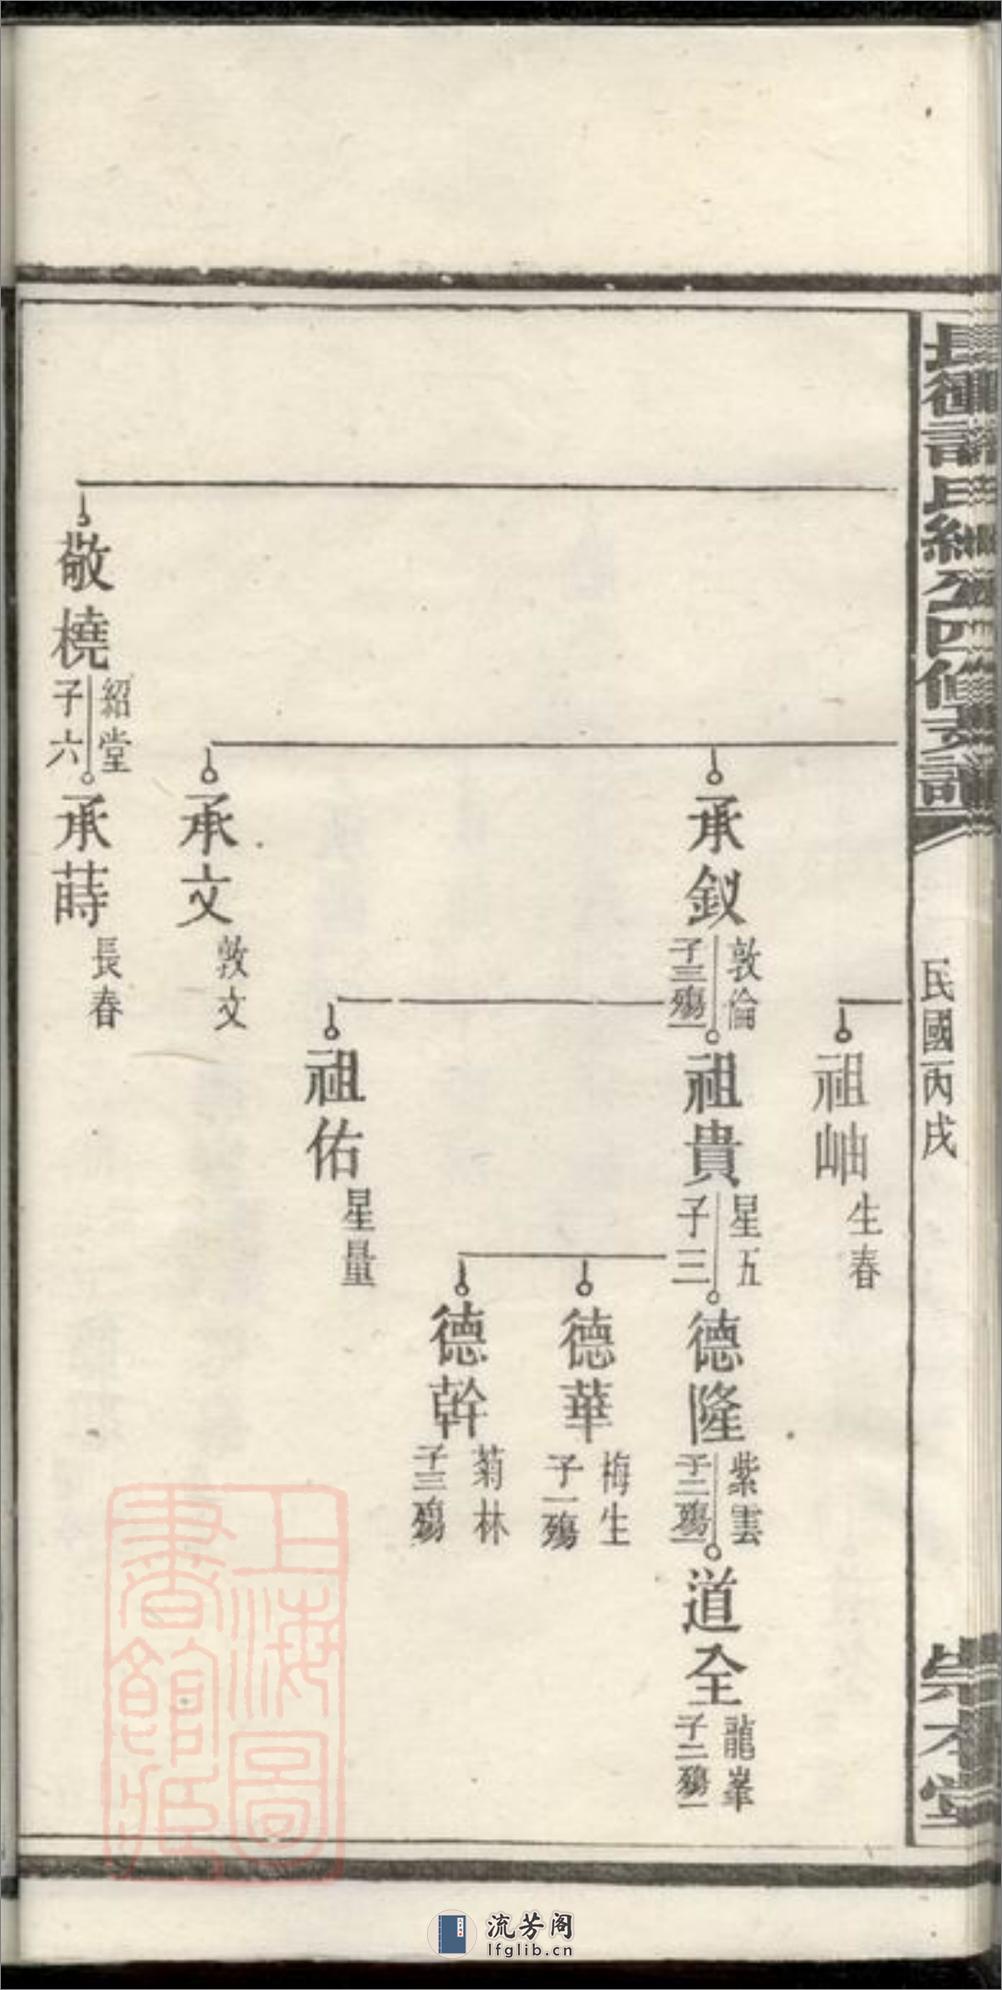 長衝許氏經公四修支譜
民國丙戌
崇本堂
祖岫
生春
承釵
敦倫
子三殤一
祖貴
星五
子三
德隆
紫雲
子二殤一
道全
龍峯
子二殤一
德華
梅生
子一殤
德幹
菊林
子三殤
祖佑
星量
承文
敦文
敬橈
紹堂
子六
承蒔
長春
上海圖
書館藏
流芳阁
lfglib.cn